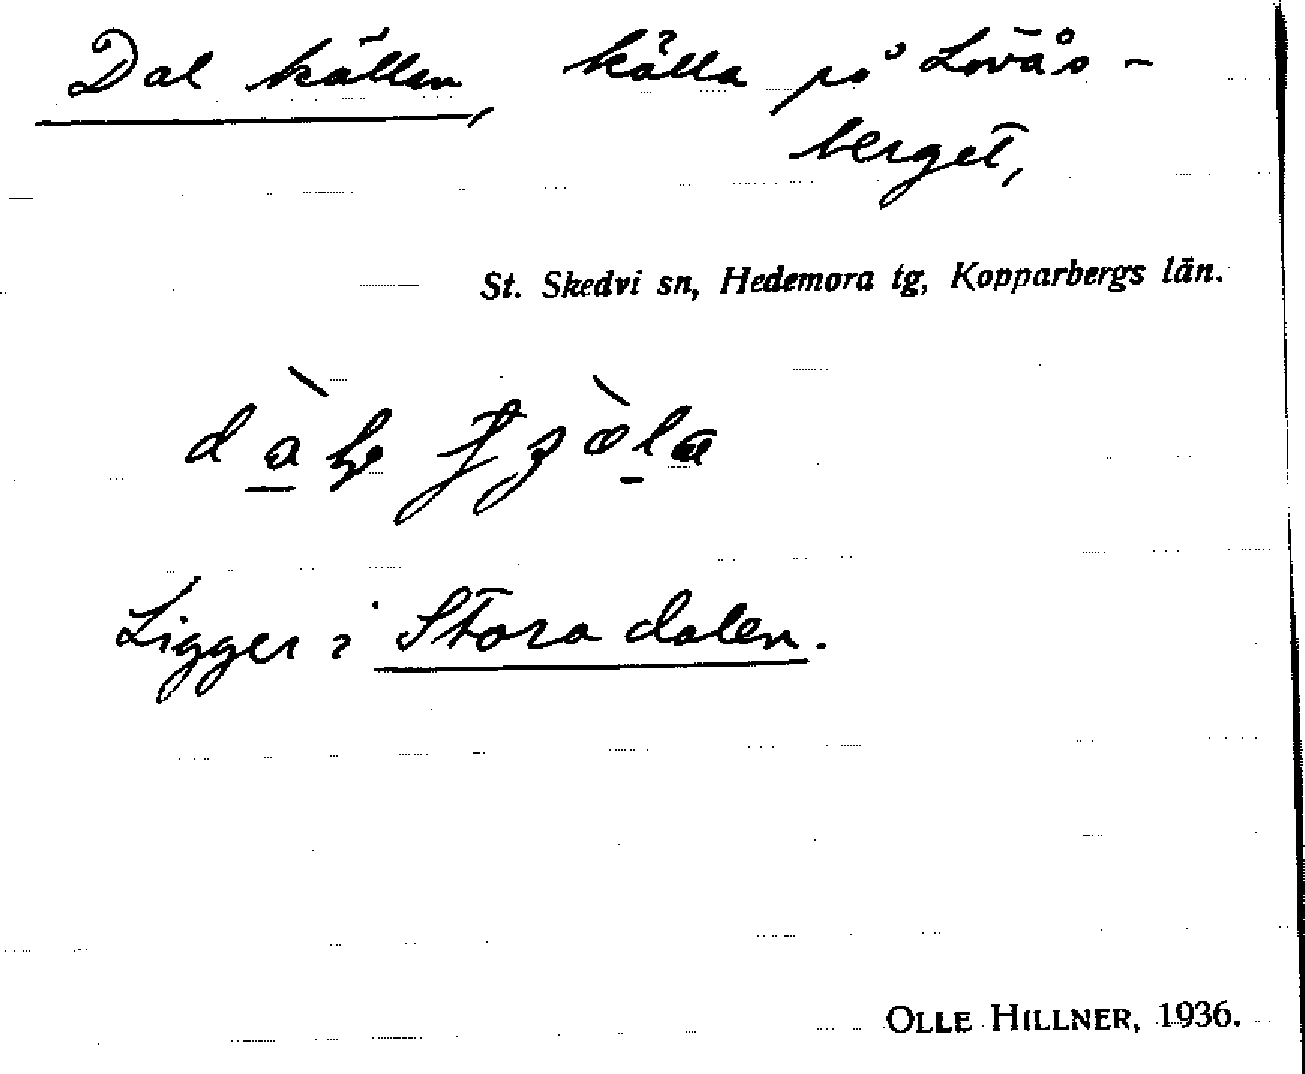 Dalkällan, källa på Lövås-
berget,
St. Skedvi sn, Hedemora tg, Kopparbergs län.
Ligger i Stora dalen.
OLLE HILLNER, 1936.